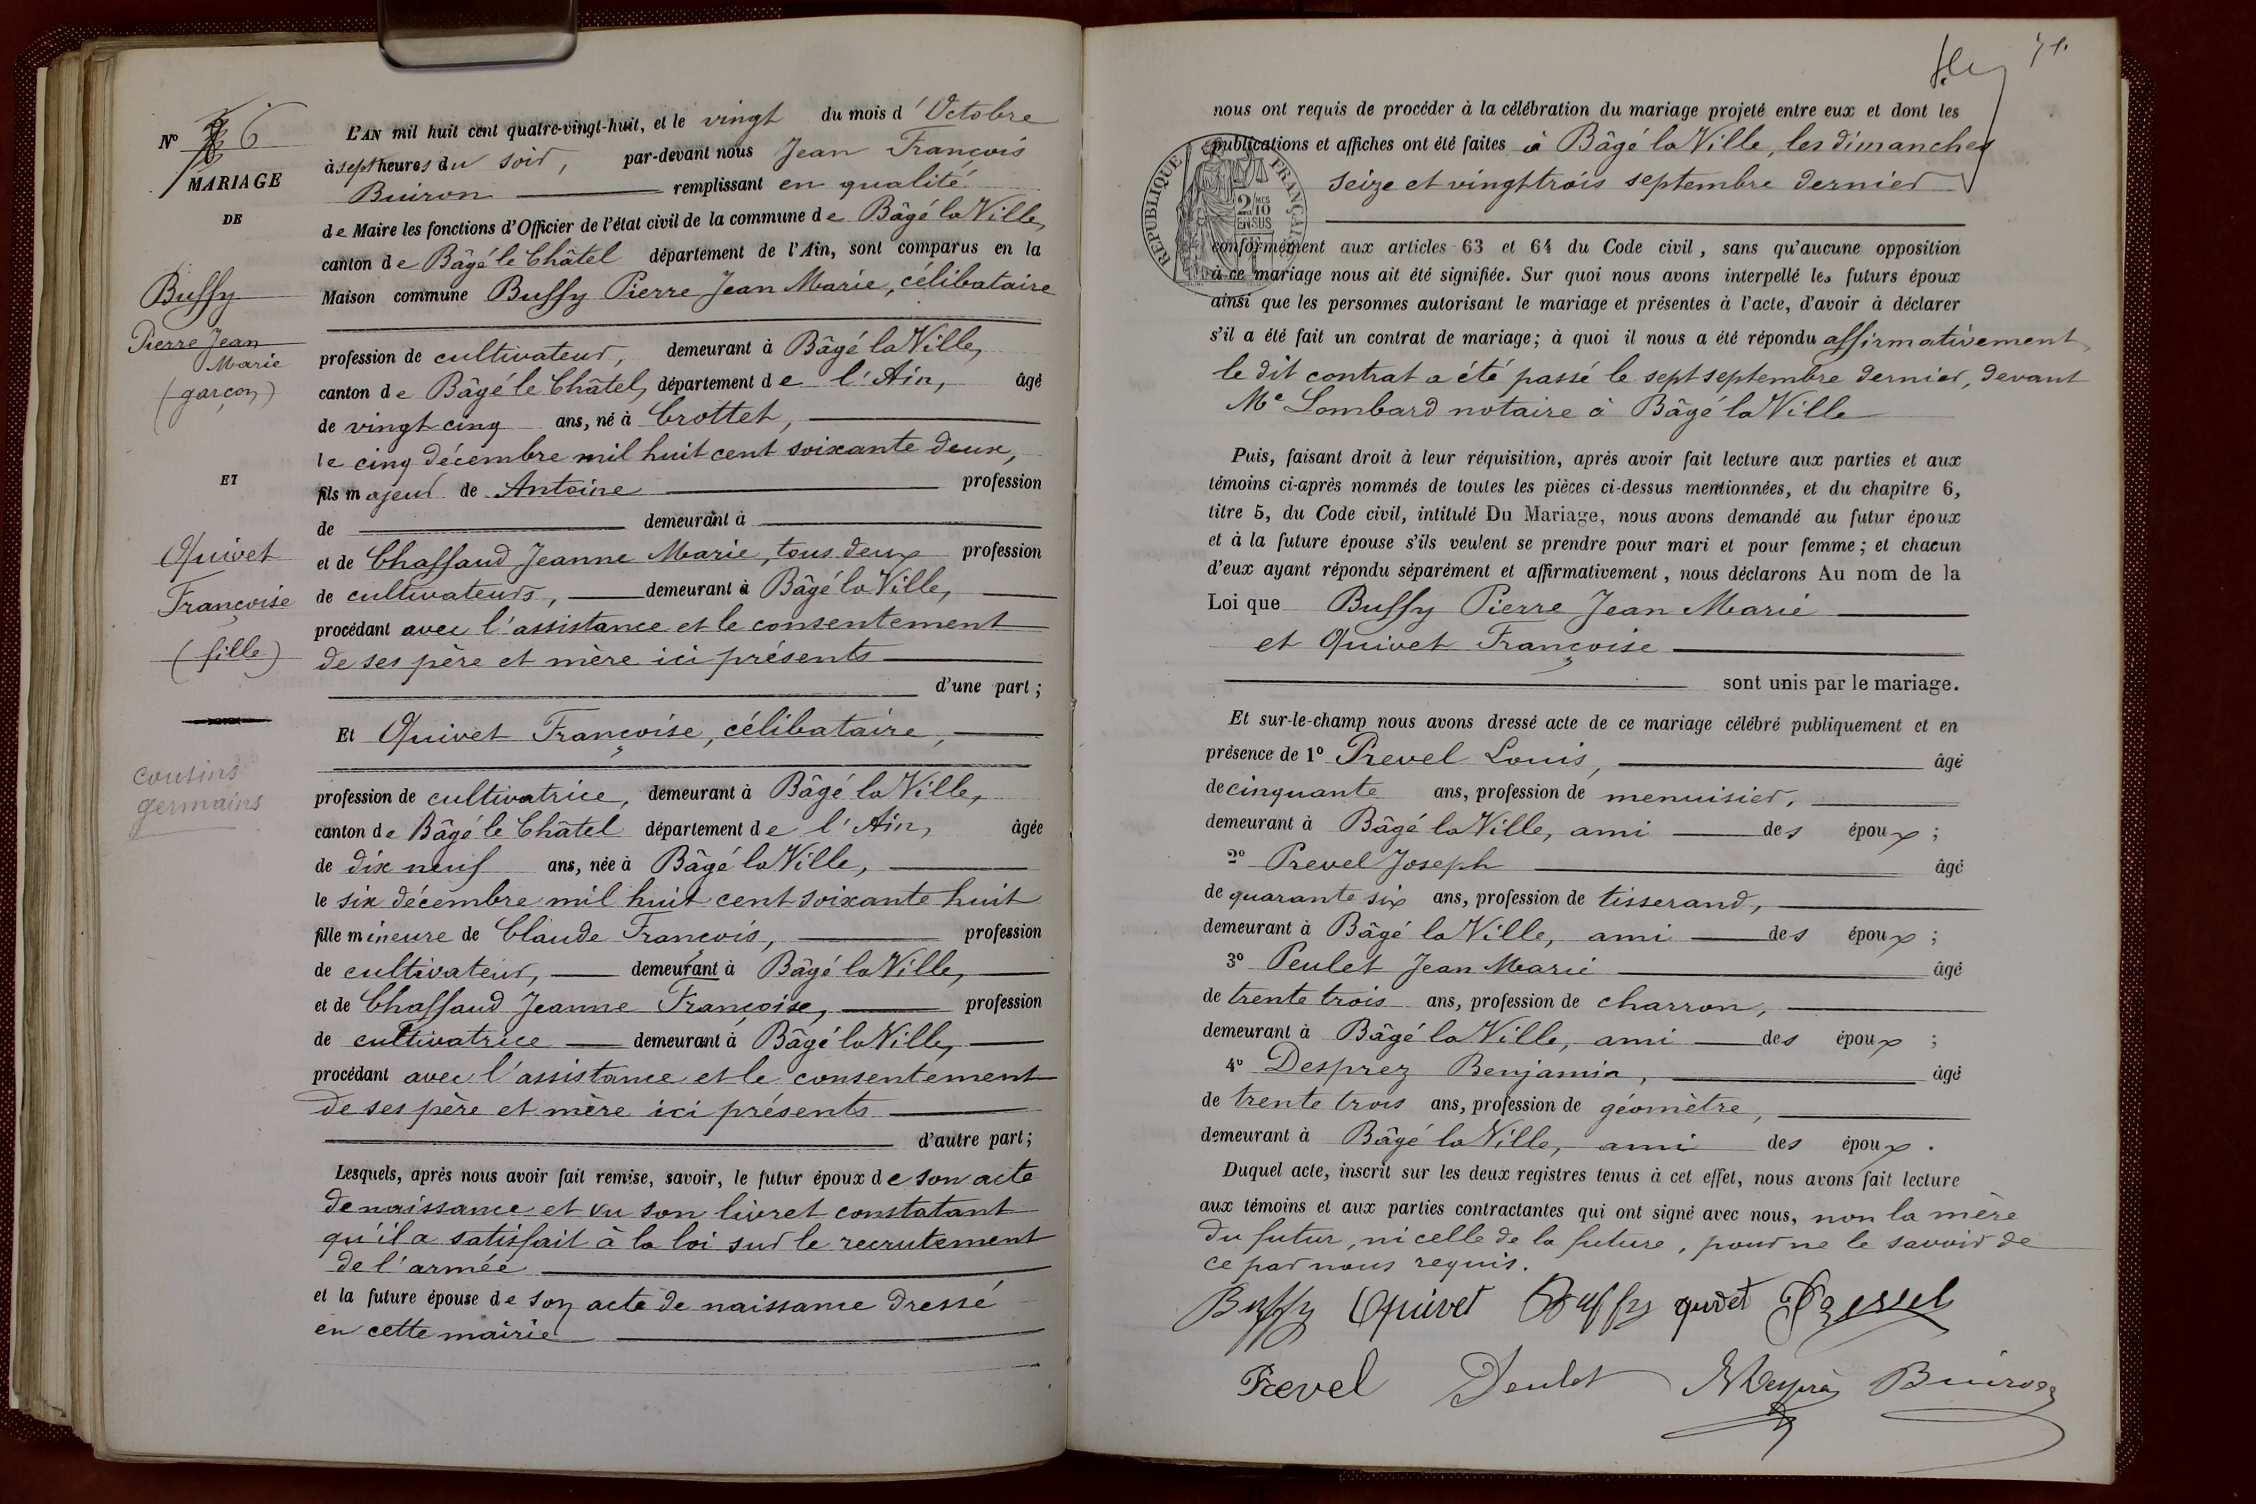 Nº 6
MARIAGE
DE
Buffy
Pierre Jean
Marie
(garçon)
ET
Quivet
Françoise
(fille)
cousins
germains
L'AN mil huit cent quatre-vingt-huit, et le vingt du mois d'Octobre
à sept heures du soir, par-devant nous Jean François
Buiron remplissant en qualité
de Maire les fonctions d'Officier de l'état civil de la commune de Bâgé la Ville,
canton de Bâgé le Châtel département de l'Ain, sont comparus en la
Maison commune Buffy Pierre Jean Marie, célibataire
profession de cultivateur, demeurant à Bâgé la Ville,
canton de Bâgé le Châtel, département de l'Ain, âgé
de vingt cinq ans, né à Crottet,
le cinq décembre mil huit cent soixante deux,
fils majeur de Antoine profession
de demeurant à
et de Chaffaud Jeanne Marie, tous deux profession
de cultivateurs, demeurant à Bâgé la Ville,
procédant avec l'assistance et le consentement
de ses père et mère ici présents
d'une part;
Et Quivet Françoise, célibataire,
profession de cultivatrice, demeurant à Bâgé la Ville,
canton de Bâgé le Châtel département de l'Ain, âgée
de dix neuf ans, née à Bâgé la Ville,
le six décembre mil huit cent soixante huit
fille mineure de Claude François, profession
de cultivateur, demeurant à Bâgé la Ville,
et de Chaffaud Jeanne Françoise, profession
de cultivatrice demeurant à Bâgé la Ville,
procédant avec l'assistance et le consentement
de ses père et mère ici présents
d'autre part;
Lesquels, après nous avoir fait remise, savoir, le futur époux de son acte
de naissance et vu son livret constatant
qu'il a satisfait à la loi sur le recrutement
de l'armée
et la future épouse de son acte de naissance dressé
en cette mairie
71.
nous ont requis de procéder à la célébration du mariage projeté entre eux et dont les
publications et affiches ont été faites à Bâgé la Ville, les dimanches
seize et vingt trois septembre dernier
RÉPUBLIQUE FRANÇAISE
2/10
EN SUS
conformément aux articles 63 et 64 du Code civil, sans qu'aucune opposition
à ce mariage nous ait été signifiée. Sur quoi nous avons interpellé les futurs époux
ainsi que les personnes autorisant le mariage et présentes à l'acte, d'avoir à déclarer
s'il a été fait un contrat de mariage; à quoi il nous a été répondu affirmativement,
le dit contrat a été passé le sept septembre dernier, devant
Me Lombard notaire à Bâgé la Ville
Puis, faisant droit à leur réquisition, après avoir fait lecture aux parties et aux
témoins ci-après nommés de toutes les pièces ci-dessus mentionnées, et du chapitre 6,
titre 5, du Code civil, intitulé Du Mariage, nous avons demandé au futur époux
et à la future épouse s'ils veulent se prendre pour mari et pour femme; et chacun
d'eux ayant répondu séparément et affirmativement, nous déclarons Au nom de la
Loi que Buffy Pierre Jean Marie
et Quivet Françoise
sont unis par le mariage.
Et sur-le-champ nous avons dressé acte de ce mariage célébré publiquement et en
présence de 1º Prevel Louis, âgé
de cinquante ans, profession de menuisier,
demeurant à Bâgé la Ville, ami des époux;
2º Prevel Joseph âgé
de quarante six ans, profession de tisserand,
demeurant à Bâgé la Ville, ami des époux;
3º Peulet Jean Marie âgé
de trente trois ans, profession de charron,
demeurant à Bâgé la Ville, ami des époux;
4º Desprez Benjamin, âgé
de trente trois ans, profession de géomètre,
demeurant à Bâgé la Ville, ami des époux.
Duquel acte, inscrit sur les deux registres tenus à cet effet, nous avons fait lecture
aux témoins et aux parties contractantes qui ont signé avec nous, non la mère
du futur, ni celle de la future, pour ne le savoir de
ce par nous requis.
Buffy Quivet Buffy quivet Prevel
Prevel Peulet Buiron